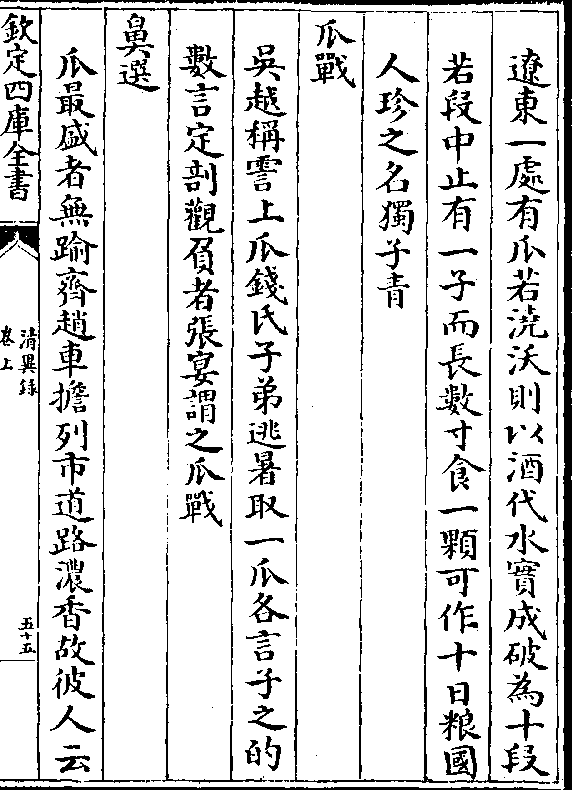 遼東一處有瓜若澆沃則以酒代水實成破為十段
若段中止有一子而長數寸食一顆可作十日粮國
人珍之名獨子青
瓜戰
吳越稱霅上瓜錢氏子弟逃暑取一瓜各言子之的
數言定剖觀負者張宴謂之瓜戰
鼻選
瓜最盛者無踰齊趙車擔列市道路濃香故彼人云
欽定四庫全書
清異録
卷上
五十五